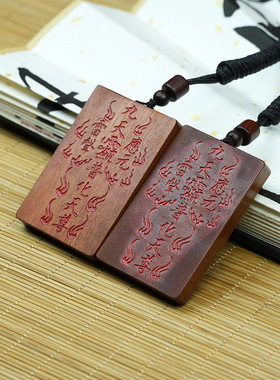 九天應元雷聲普化天尊
九天應元雷聲普化天尊